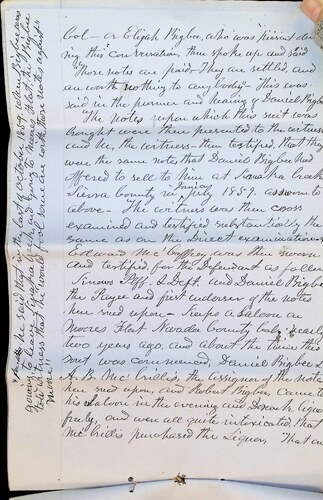 Col- or Elijah Bigbee, who was present dur
ing this conversation, then spoke up and said
"Those notes are paid- They are settled, and
are worth nothing to any body"- This was
said in the presence and hearing of Daniel Bigbee
The notes upon which this suit was
brought were then presented to the witness
and he, the witness- then testified, that they
were the same notes that Daniel Bigbee had
offered to sell to him at Kanaka Creek
Sierra County in July 1859. as sworn to
above- The witness was then cross
examined and testified substantially the
same as on the Direct examination-
Edward McCaffrey was then sworn
and testified, for the Defendant as follows
Knows Plff. & Deft. and Daniel Bigbee
the Payee and first endorser of the notes
here sued upon- Keeps a Saloon on
Moores Flat Nevada County Caly- nearly
two years ago, and about the time this
suit was commenced, Daniel Bigbee &
A. B. McCrillis, the assignee of the notes
here sued upon, and Robert Bigbee came to
his saloon in the evening and Drank liquor
freely, and were all quite intoxicated, that
McCrillis purchased the liquor, That on
he said that in the last of October 1859, when Bigbee was
going to
witness that
more"